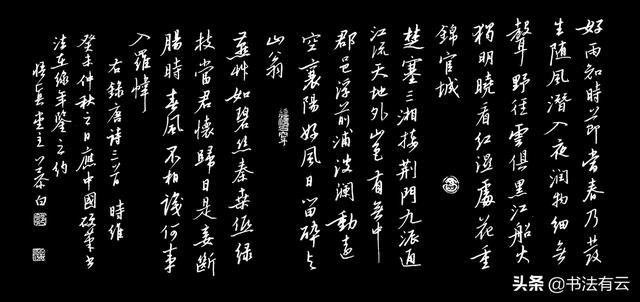 好雨知時節當春乃發
生隨風潛入夜潤物細無
聲野徑雲俱黑江船火
獨明曉看紅濕處花重
錦官城
楚塞三湘接荊門九派通
江流天地外山色有無中
郡邑浮前浦波瀾動遠
空襄陽好風日留醉与
山翁
燕艸如碧絲秦桑低綠
枝當君懷歸日是妾斷
腸時春風不相識何事
入羅幃
右錄唐詩三首 時維
癸未仲秋之日應中國
之約
堂主慕白
头条 @书法有云